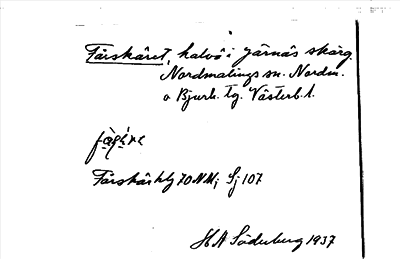 Fårskäret, halvö i Järnäs skärg.
Nordmalings sn. Nordm.
o Bjurh. tg. Västerb. l.
Fårskär kbg 70 NM; Sj 107
H A Söderberg 1937